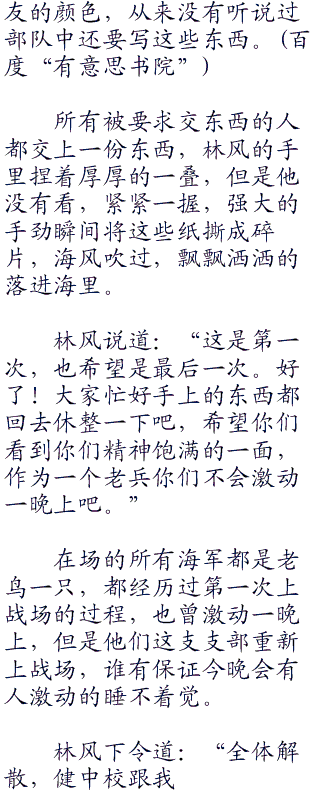 友的颜色，从来没有听说过
部队中还要写这些东西。(百
度“有意思书院”)
所有被要求交东西的人
都交上一份东西，林风的手
里捏着厚厚的一叠，但是他
没有看，紧紧一握，强大的
手劲瞬间将这些纸撕成碎
片，海风吹过，飘飘洒洒的
落进海里。
林风说道：“这是第一
次，也希望是最后一次。好
了！大家忙好手上的东西都
回去休整一下吧，希望你们
看到你们精神饱满的一面，
作为一个老兵你们不会激动
一晚上吧。”
在场的所有海军都是老
鸟一只，都经历过第一次上
战场的过程，也曾激动一晚
上，但是他们这支支部重新
上战场，谁有保证今晚会有
人激动的睡不着觉。
林风下令道：“全体解
散，健中校跟我